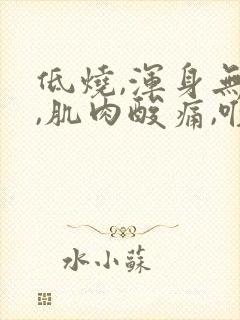 低燒,渾身無
,肌肉酸痛,喉
水小蘇